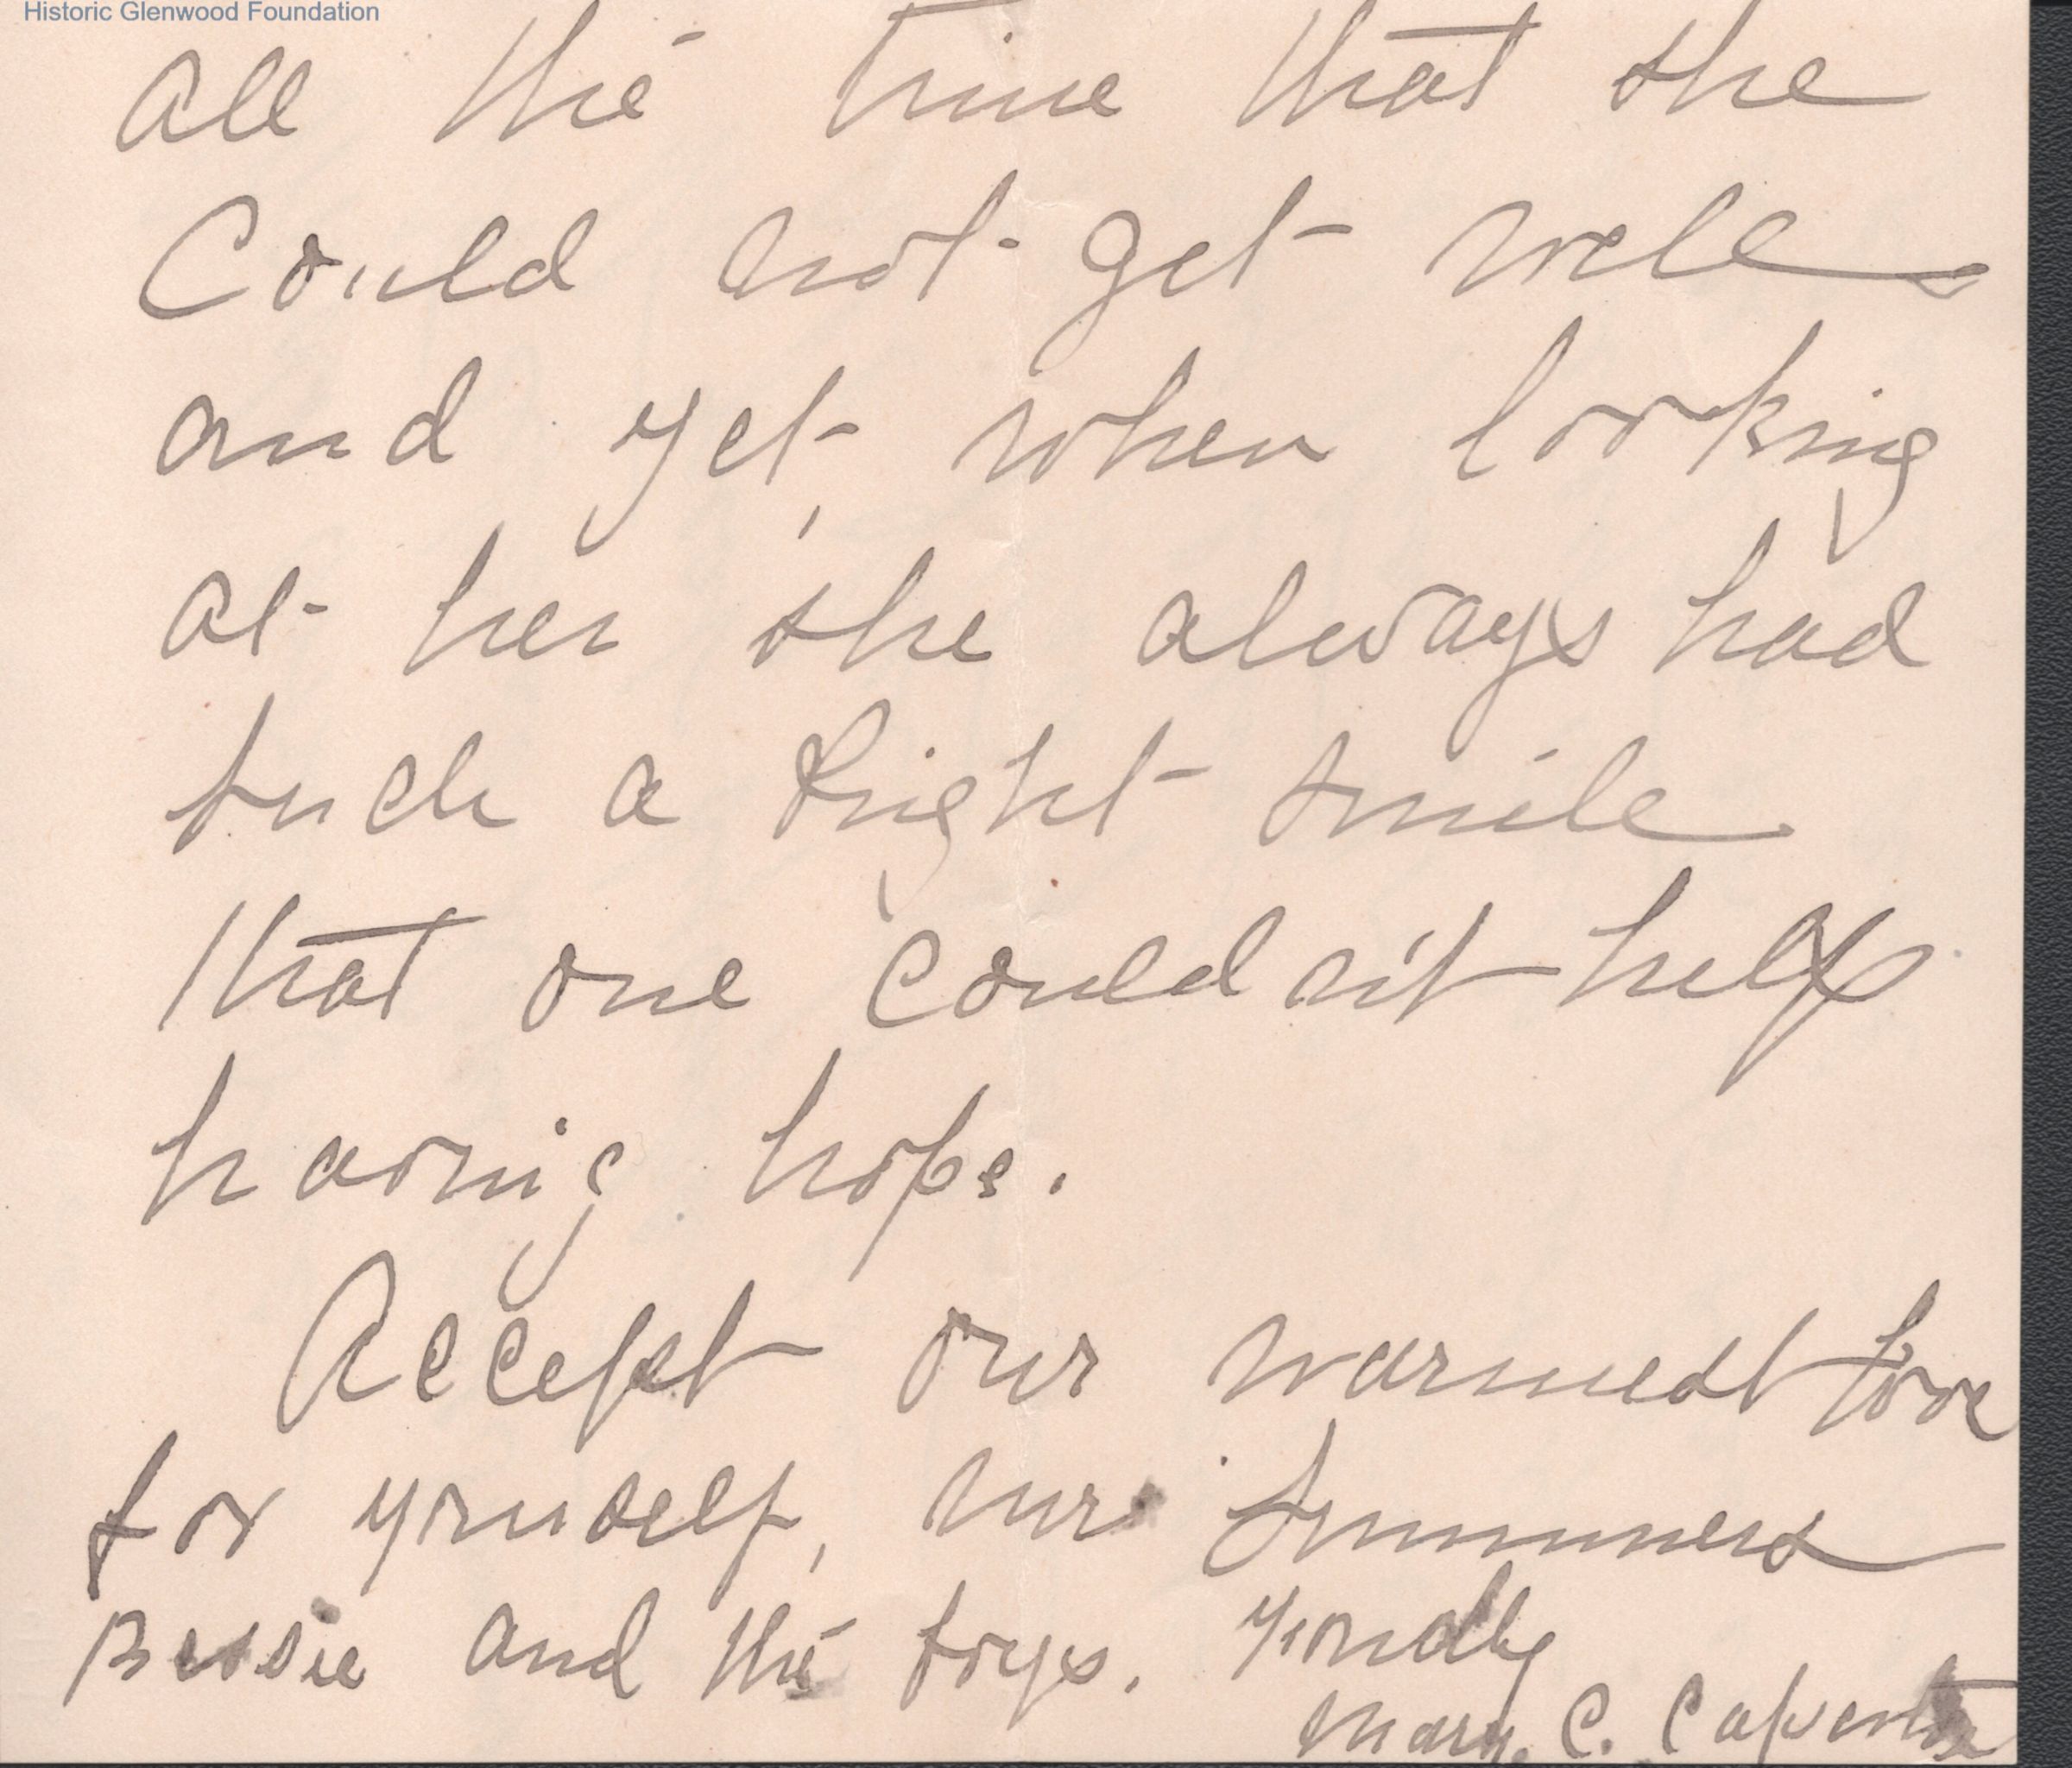 Historic Glenwood Foundation
all the time that she
Could not get well
and yet, when looking
at her she always had
such a bright smile
that one couldn't help
having hope.
Accept our warmest love
for yourself, Mr. Summers
Bessie and the boys. Fondly
Mary. C. Caperton